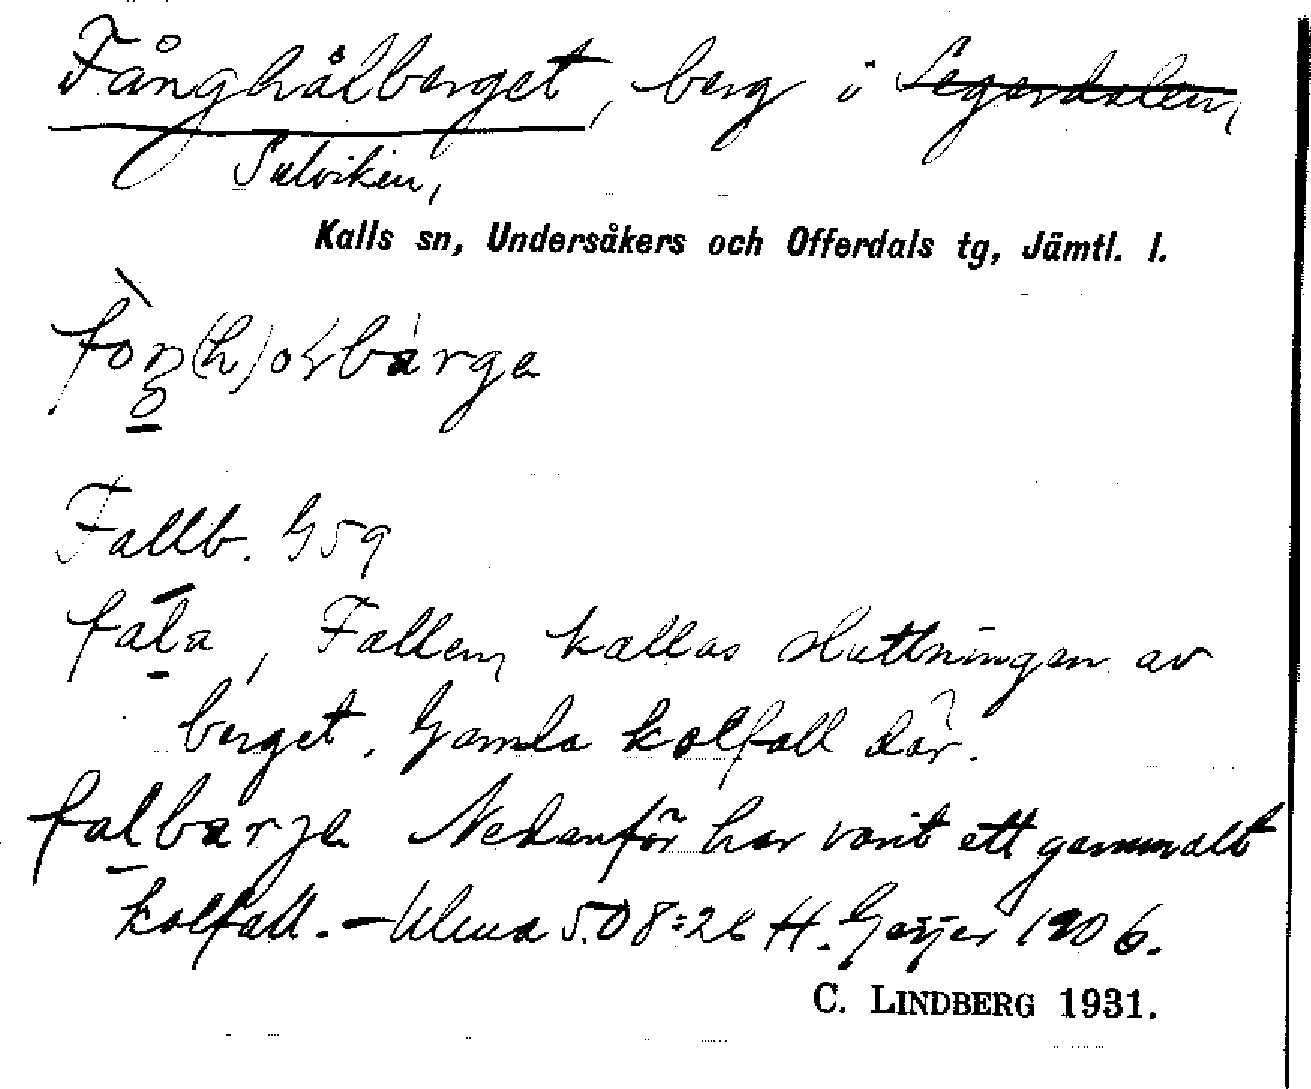 Fånghålberget, berg i Segerdalen,
Sulviken,
Kalls sn, Undersåkers och Offerdals tg, Jämtl. l.
Fallb. G59
fala, Fallen, kallas sluttningen av
berget. Gamla kolfall där.
falbarje Nedanför har varit ett gammalt
kolfall. – Ulma 508:26 H. Geijer 1906.
C. LINDBERG 1931.